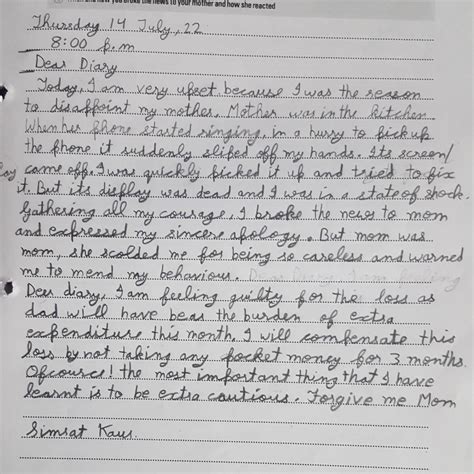 how you broke the news to your mother and how she reacted
Thursday 14 July, 22
8:00 p.m
Dear Diary
Today, I am very upset because I was the reason
to disappoint my mother. Mother was in the kitchen
When her phone started ringing, in a hurry to pick up
the phone it suddenly sliped off my hands. Its screen/
came off. I was quickly picked it up and tried to fix
it. But its display was dead and I was in a state of shock.
Gathering all my courage, I broke the news to mom
and expressed my sincere apology. But mom was
mom, she scolded me for being so careless and warned
me to mend my behaviour. Dear Diary, I am
Dear diary, I am feeling guilty for the loss as
dad will have bear the burden of extra
expenditure this month. I will compensate this
loss by not taking any pocket money for 3 months.
Ofcource! the most important thing that I have
learnt is to be extra cautious. Forgive me Mom
Simrat Kaur